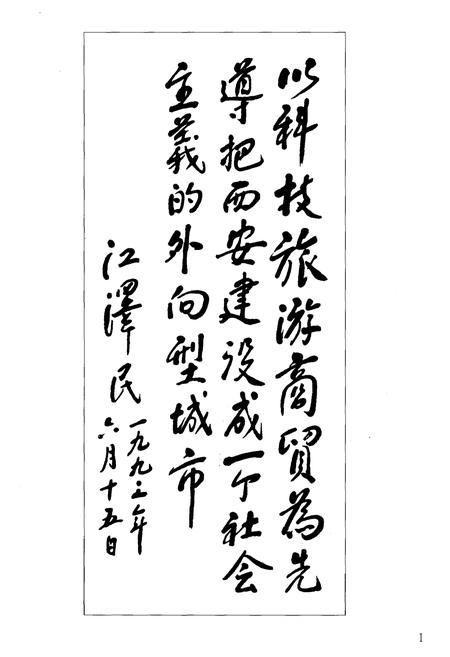 以科技旅游商貿為先
導把西安建设成一个社会
主義的外向型城市
江澤民
一九九三年
六月十五日
1